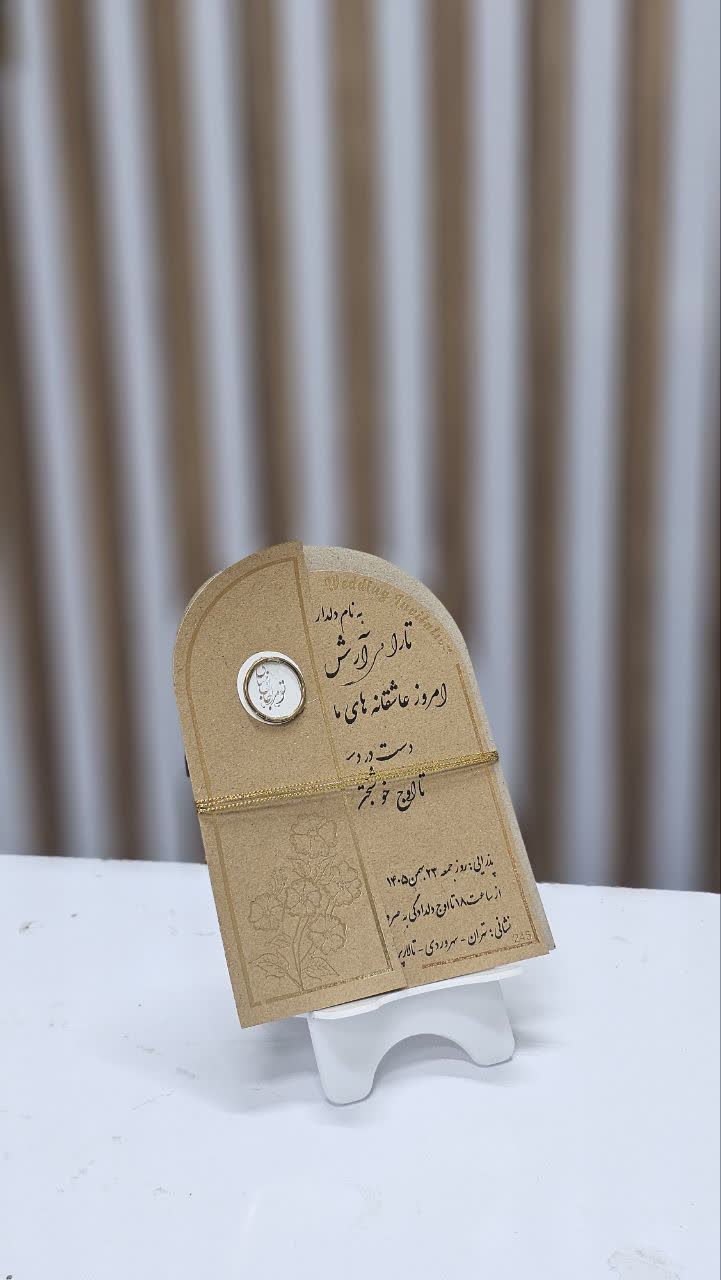 Wedding Invitation
به نام دلدار
تارا و آرش
امروز عاشقانه های ما
دست در دس
تا اوج خوشبختی
پذیرایی: روز جمعه ۲۳ بهمن ۱۴۰۵
از ساعت ۱۸ تا اوج دلدادگی به صرف
نشانی: تهران - سهروردی - تالار
245